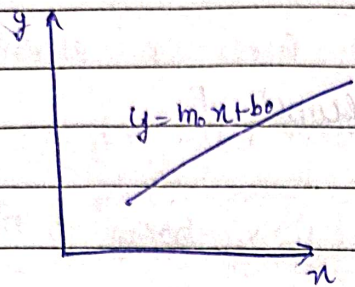 y
y = m₀x+b₀
x